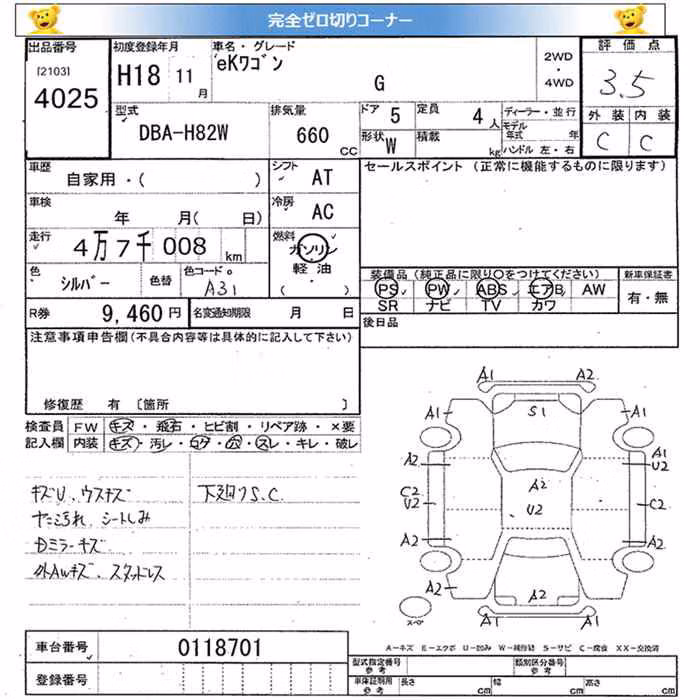 完全ゼロ切りコーナー
出品番号
[2103]
4025
初度登録年月
H18 11 月
車名・グレード
eKワゴン
G
2WD
・
4WD
評価点
3.5
外装 内装
C C
型式
DBA-H82W
排気量
660 CC
ドア 5
定員 4 人
形状 W
積載 kg
ディーラー・並行
モデル年式 年
ハンドル 左・右
車歴
自家用・( )
シフト AT
車検
年 月( 日)
冷房 AC
走行
4万7千008 km
燃料
ガソリン
・
軽油
( )
色
シルバー
色替
色コード
A31
R券 9,460 円
名変通知期限 月 日
セールスポイント (正常に機能するものに限ります)
装備品(純正品に限り○をつけてください)
PS PW ABS エアB AW
SR ナビ TV カワ
新車保証書
有・無
後日品
注意事項申告欄(不具合内容等は具体的に記入して下さい)
修復歴 有 〔箇所 〕
検査員記入欄
FW キズ・飛石・ヒビ割・リペア跡・×要
内装 キズ・汚レ・コゲ・穴・スレ・キレ・破レ
キズU、ウスキズ
ヤニ汚れ、シートしみ
Dミラーキズ
外AWキズ、スタッドレス
下廻りS.C.
A1 A2
A1 S1 A1
A2 A1
U2
A2
C2
U2 U2 C2
A2 A2
A2 A2 A2
A1 A1
スペア
A－キズ E－エクボ U－凹み W－補修跡 S－サビ C－腐食 XX－交換済
車台番号 0118701
登録番号
型式指定番号
参考
類別区分番号
参考
車庫証明用
参考
長さ cm
幅 cm
高さ cm